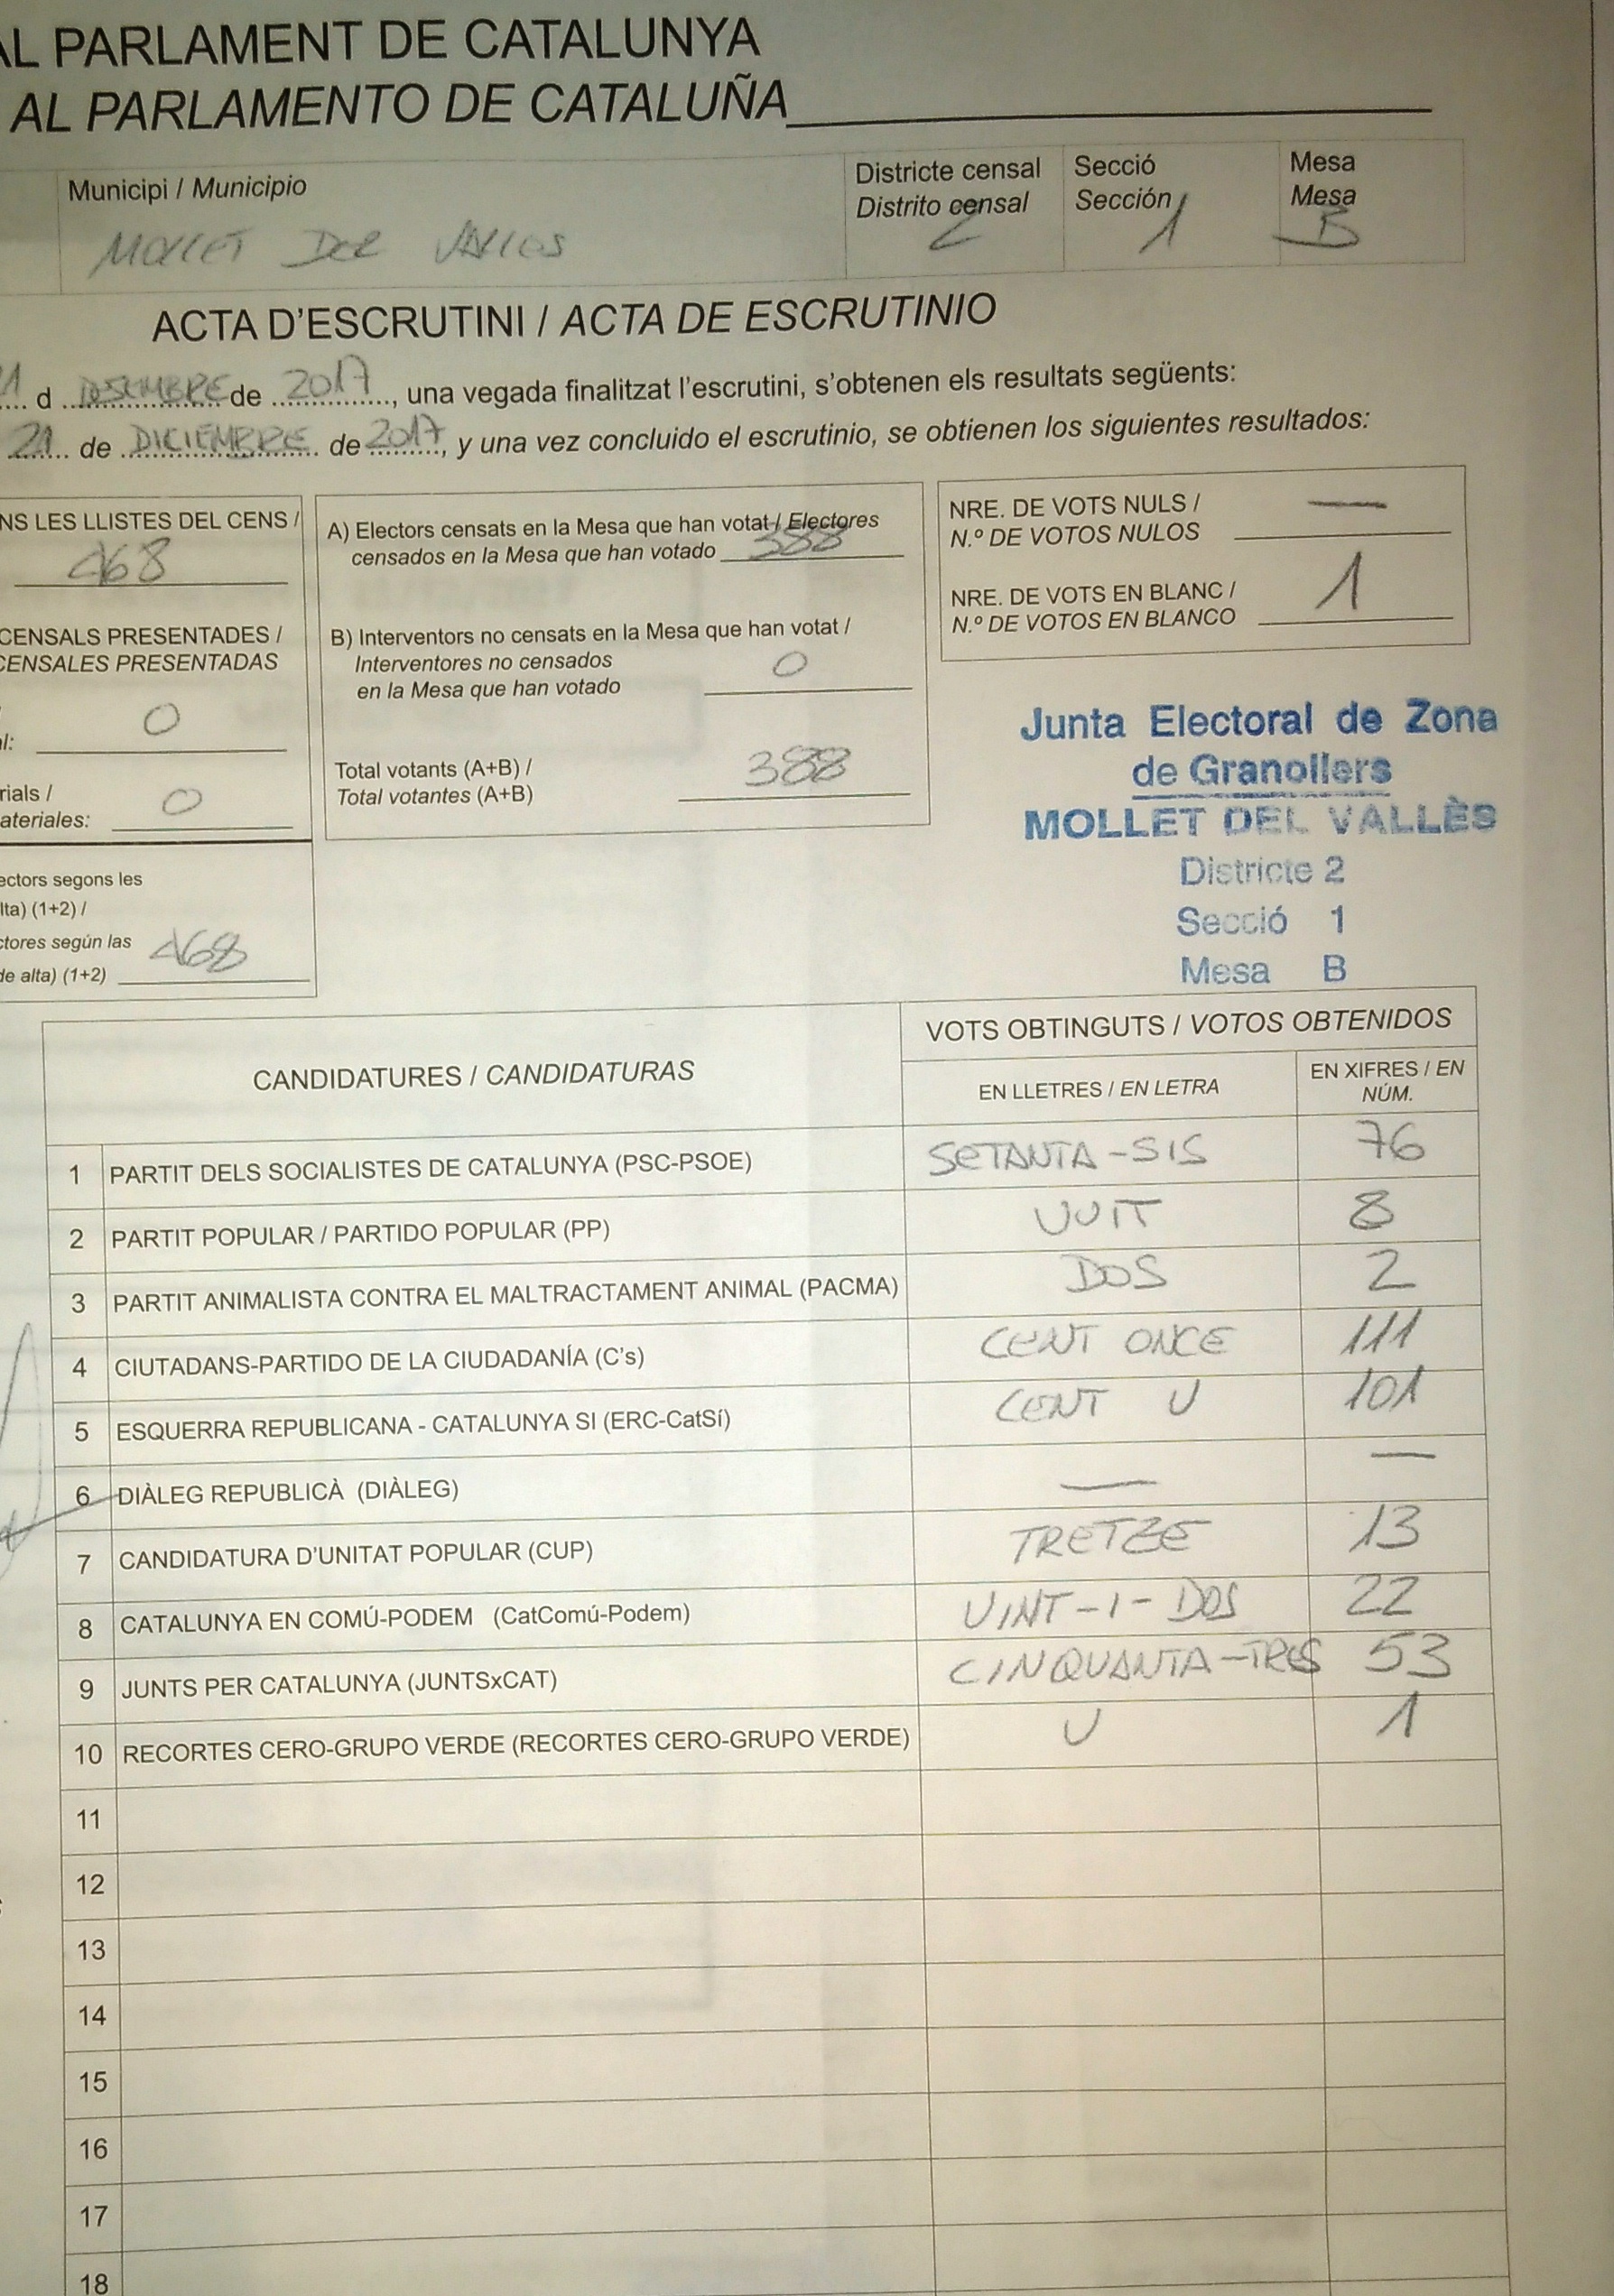 AL PARLAMENT DE CATALUNYA
AL PARLAMENTO DE CATALUÑA
Municipi / Municipio
MOLLET DEL VALLES
Districte censal
Distrito censal
2
Secció
Sección
1
Mesa
Mesa
B
ACTA D'ESCRUTINI / ACTA DE ESCRUTINIO
21 d DESEMBRE de 2017, una vegada finalitzat l'escrutini, s'obtenen els resultats següents:
21 de DICIEMBRE de 2017, y una vez concluido el escrutinio, se obtienen los siguientes resultados:
NS LES LLISTES DEL CENS /
468
CENSALS PRESENTADES /
CENSALES PRESENTADAS
al: 0
rials /
ateriales: 0
ectors segons les
lta) (1+2) /
ctores según las
de alta) (1+2) 468
A) Electors censats en la Mesa que han votat / Electores
censados en la Mesa que han votado 388
B) Interventors no censats en la Mesa que han votat /
Interventores no censados
en la Mesa que han votado 0
Total votants (A+B) /
Total votantes (A+B) 388
NRE. DE VOTS NULS /
N.º DE VOTOS NULOS —
NRE. DE VOTS EN BLANC /
N.º DE VOTOS EN BLANCO 1
Junta Electoral de Zona
de Granollers
MOLLET DEL VALLÈS
Districte 2
Secció 1
Mesa B
CANDIDATURES / CANDIDATURAS
VOTS OBTINGUTS / VOTOS OBTENIDOS
EN LLETRES / EN LETRA
EN XIFRES / EN
NÚM.
1 PARTIT DELS SOCIALISTES DE CATALUNYA (PSC-PSOE) SETANTA-SIS 76
2 PARTIT POPULAR / PARTIDO POPULAR (PP) VUIT 8
3 PARTIT ANIMALISTA CONTRA EL MALTRACTAMENT ANIMAL (PACMA) DOS 2
4 CIUTADANS-PARTIDO DE LA CIUDADANÍA (C's) CENT ONCE 111
5 ESQUERRA REPUBLICANA - CATALUNYA SI (ERC-CatSí) CENT U 101
6 DIÀLEG REPUBLICÀ (DIÀLEG) — —
7 CANDIDATURA D'UNITAT POPULAR (CUP) TRETZE 13
8 CATALUNYA EN COMÚ-PODEM (CatComú-Podem) VINT-I-DOS 22
9 JUNTS PER CATALUNYA (JUNTSxCAT) CINQUANTA-TRES 53
10 RECORTES CERO-GRUPO VERDE (RECORTES CERO-GRUPO VERDE) U 1
11
12
13
14
15
16
17
18